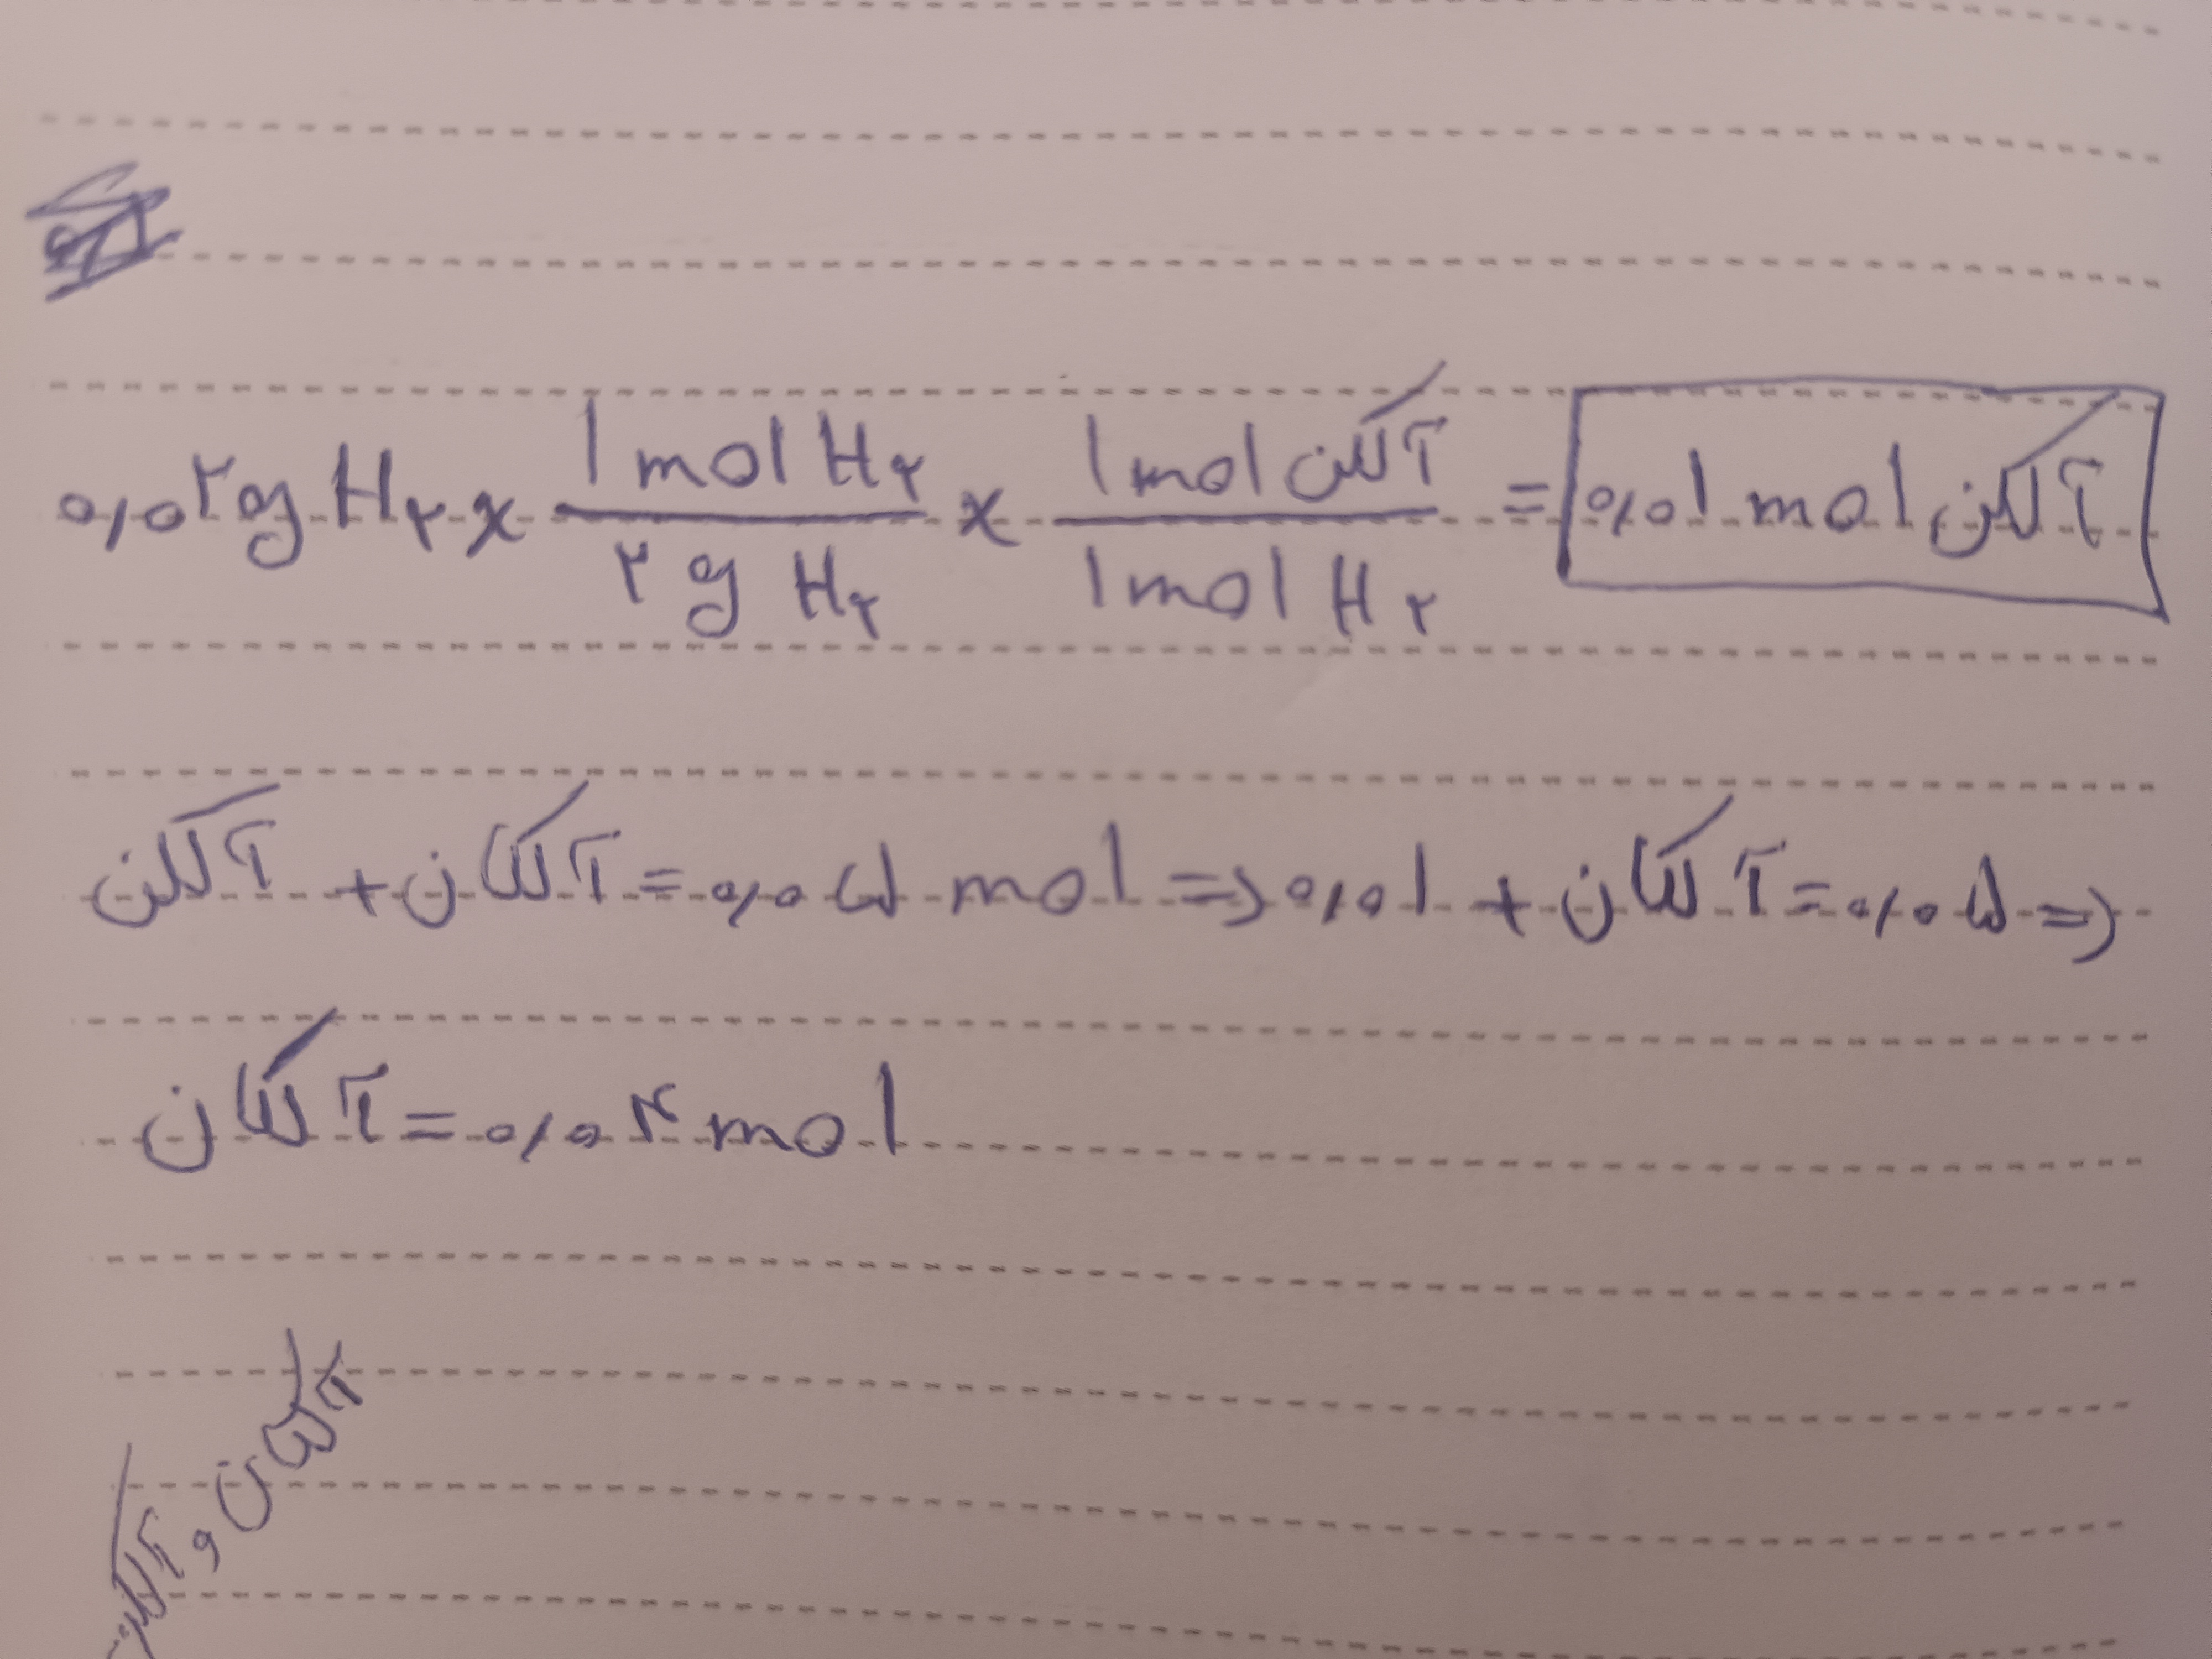 ۰٫۰۲ g H₂ × 1 mol H₂ / ۲ g H₂ × 1 mol آلکن / 1 mol H₂ = ۰٫۰۱ mol آلکن
آلکن + آلکان = ۰٫۰۵ mol => ۰٫۰۱ + آلکان = ۰٫۰۵ =>
آلکان = ۰٫۰۴ mol
آلکان و آلکن